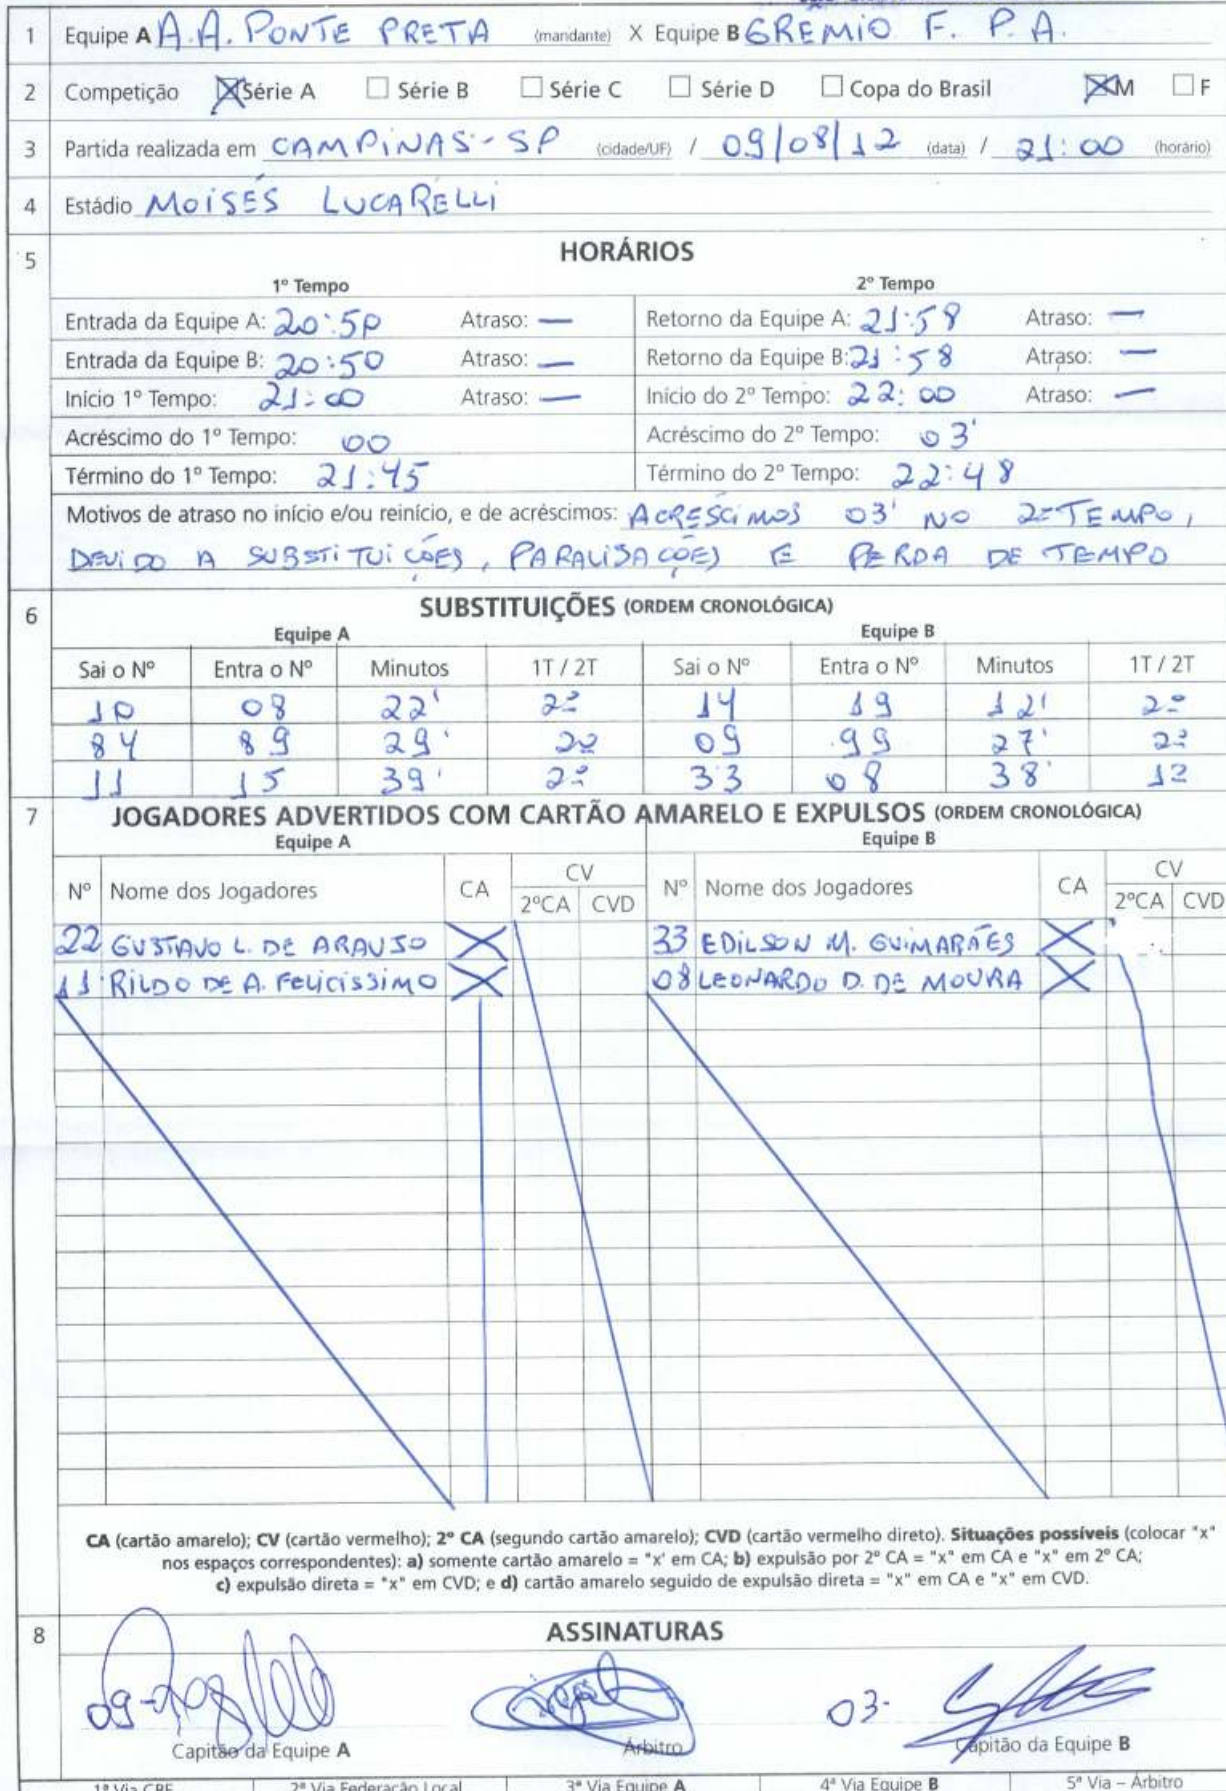 1 Equipe A A.A. PONTE PRETA (mandante) X Equipe B GRÊMIO F. P. A.
2 Competição Série A Série B Série C Série D Copa do Brasil M F
3 Partida realizada em CAMPINAS-SP (cidade/UF) / 09/08/12 (data) / 21:00 (horário)
4 Estádio MOISÉS LUCARELLI
5 HORÁRIOS
1º Tempo 2º Tempo
Entrada da Equipe A: 20:50 Atraso: — Retorno da Equipe A: 21:58 Atraso: —
Entrada da Equipe B: 20:50 Atraso: — Retorno da Equipe B: 21:58 Atraso: —
Início 1º Tempo: 21:00 Atraso: — Início do 2º Tempo: 22:00 Atraso: —
Acréscimo do 1º Tempo: 00 Acréscimo do 2º Tempo: 03'
Término do 1º Tempo: 21:45 Término do 2º Tempo: 22:48
Motivos de atraso no início e/ou reinício, e de acréscimos: ACRÉSCIMOS 03' NO 2º TEMPO,
DEVIDO A SUBSTITUIÇÕES, PARALISAÇÕES E PERDA DE TEMPO
6 SUBSTITUIÇÕES (ORDEM CRONOLÓGICA)
Equipe A Equipe B
Sai o Nº Entra o Nº Minutos 1T / 2T Sai o Nº Entra o Nº Minutos 1T / 2T
10 08 22' 2º 14 19 12' 2º
84 89 29' 2º 09 99 27' 2º
11 15 39' 2º 33 08 38' 1º
7 JOGADORES ADVERTIDOS COM CARTÃO AMARELO E EXPULSOS (ORDEM CRONOLÓGICA)
Equipe A Equipe B
Nº Nome dos Jogadores CA CV Nº Nome dos Jogadores CA CV
2ºCA CVD 2ºCA CVD
22 GUSTAVO L. DE ARAUJO X 33 EDILSON M. GUIMARÃES X
11 RILDO DE A. FELICISSIMO X 08 LEONARDO D. DE MOURA X
CA (cartão amarelo); CV (cartão vermelho); 2º CA (segundo cartão amarelo); CVD (cartão vermelho direto). Situações possíveis (colocar "x"
nos espaços correspondentes): a) somente cartão amarelo = "x' em CA; b) expulsão por 2º CA = "x" em CA e "x" em 2º CA;
c) expulsão direta = "x" em CVD; e d) cartão amarelo seguido de expulsão direta = "x" em CA e "x" em CVD.
8 ASSINATURAS
09- 03-
Capitão da Equipe A Árbitro Capitão da Equipe B
1ª Via CBF 2ª Via Federação Local 3ª Via Equipe A 4ª Via Equipe B 5ª Via – Árbitro